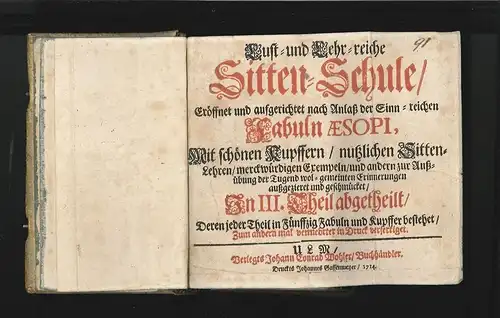 91
Lust-und Lehr-reiche
Sitten-Schule/
Eröffnet und aufgerichtet nach Anlaß der Sinn-reichen
Fabuln ÆSOPI,
Mit schönen Kupffern/ nutzlichen Sitten-
Lehren/ merckwürdigen Exempeln/ und andern zur Auß-
übung der Tugend wol-gemeinten Erinnerungen
außgezieret und geschmücket/
In III. Theil abgetheilt/
Deren jeder Theil in Fünffzig Fabuln und Kupffer bestehet/
Zum andern mal vermehrter in Druck verfertiget.
ULM/
Verlegts Johann Conrad Wohler/ Buchhändler.
Druckts Johannes Gassenmeyer/ 1714.